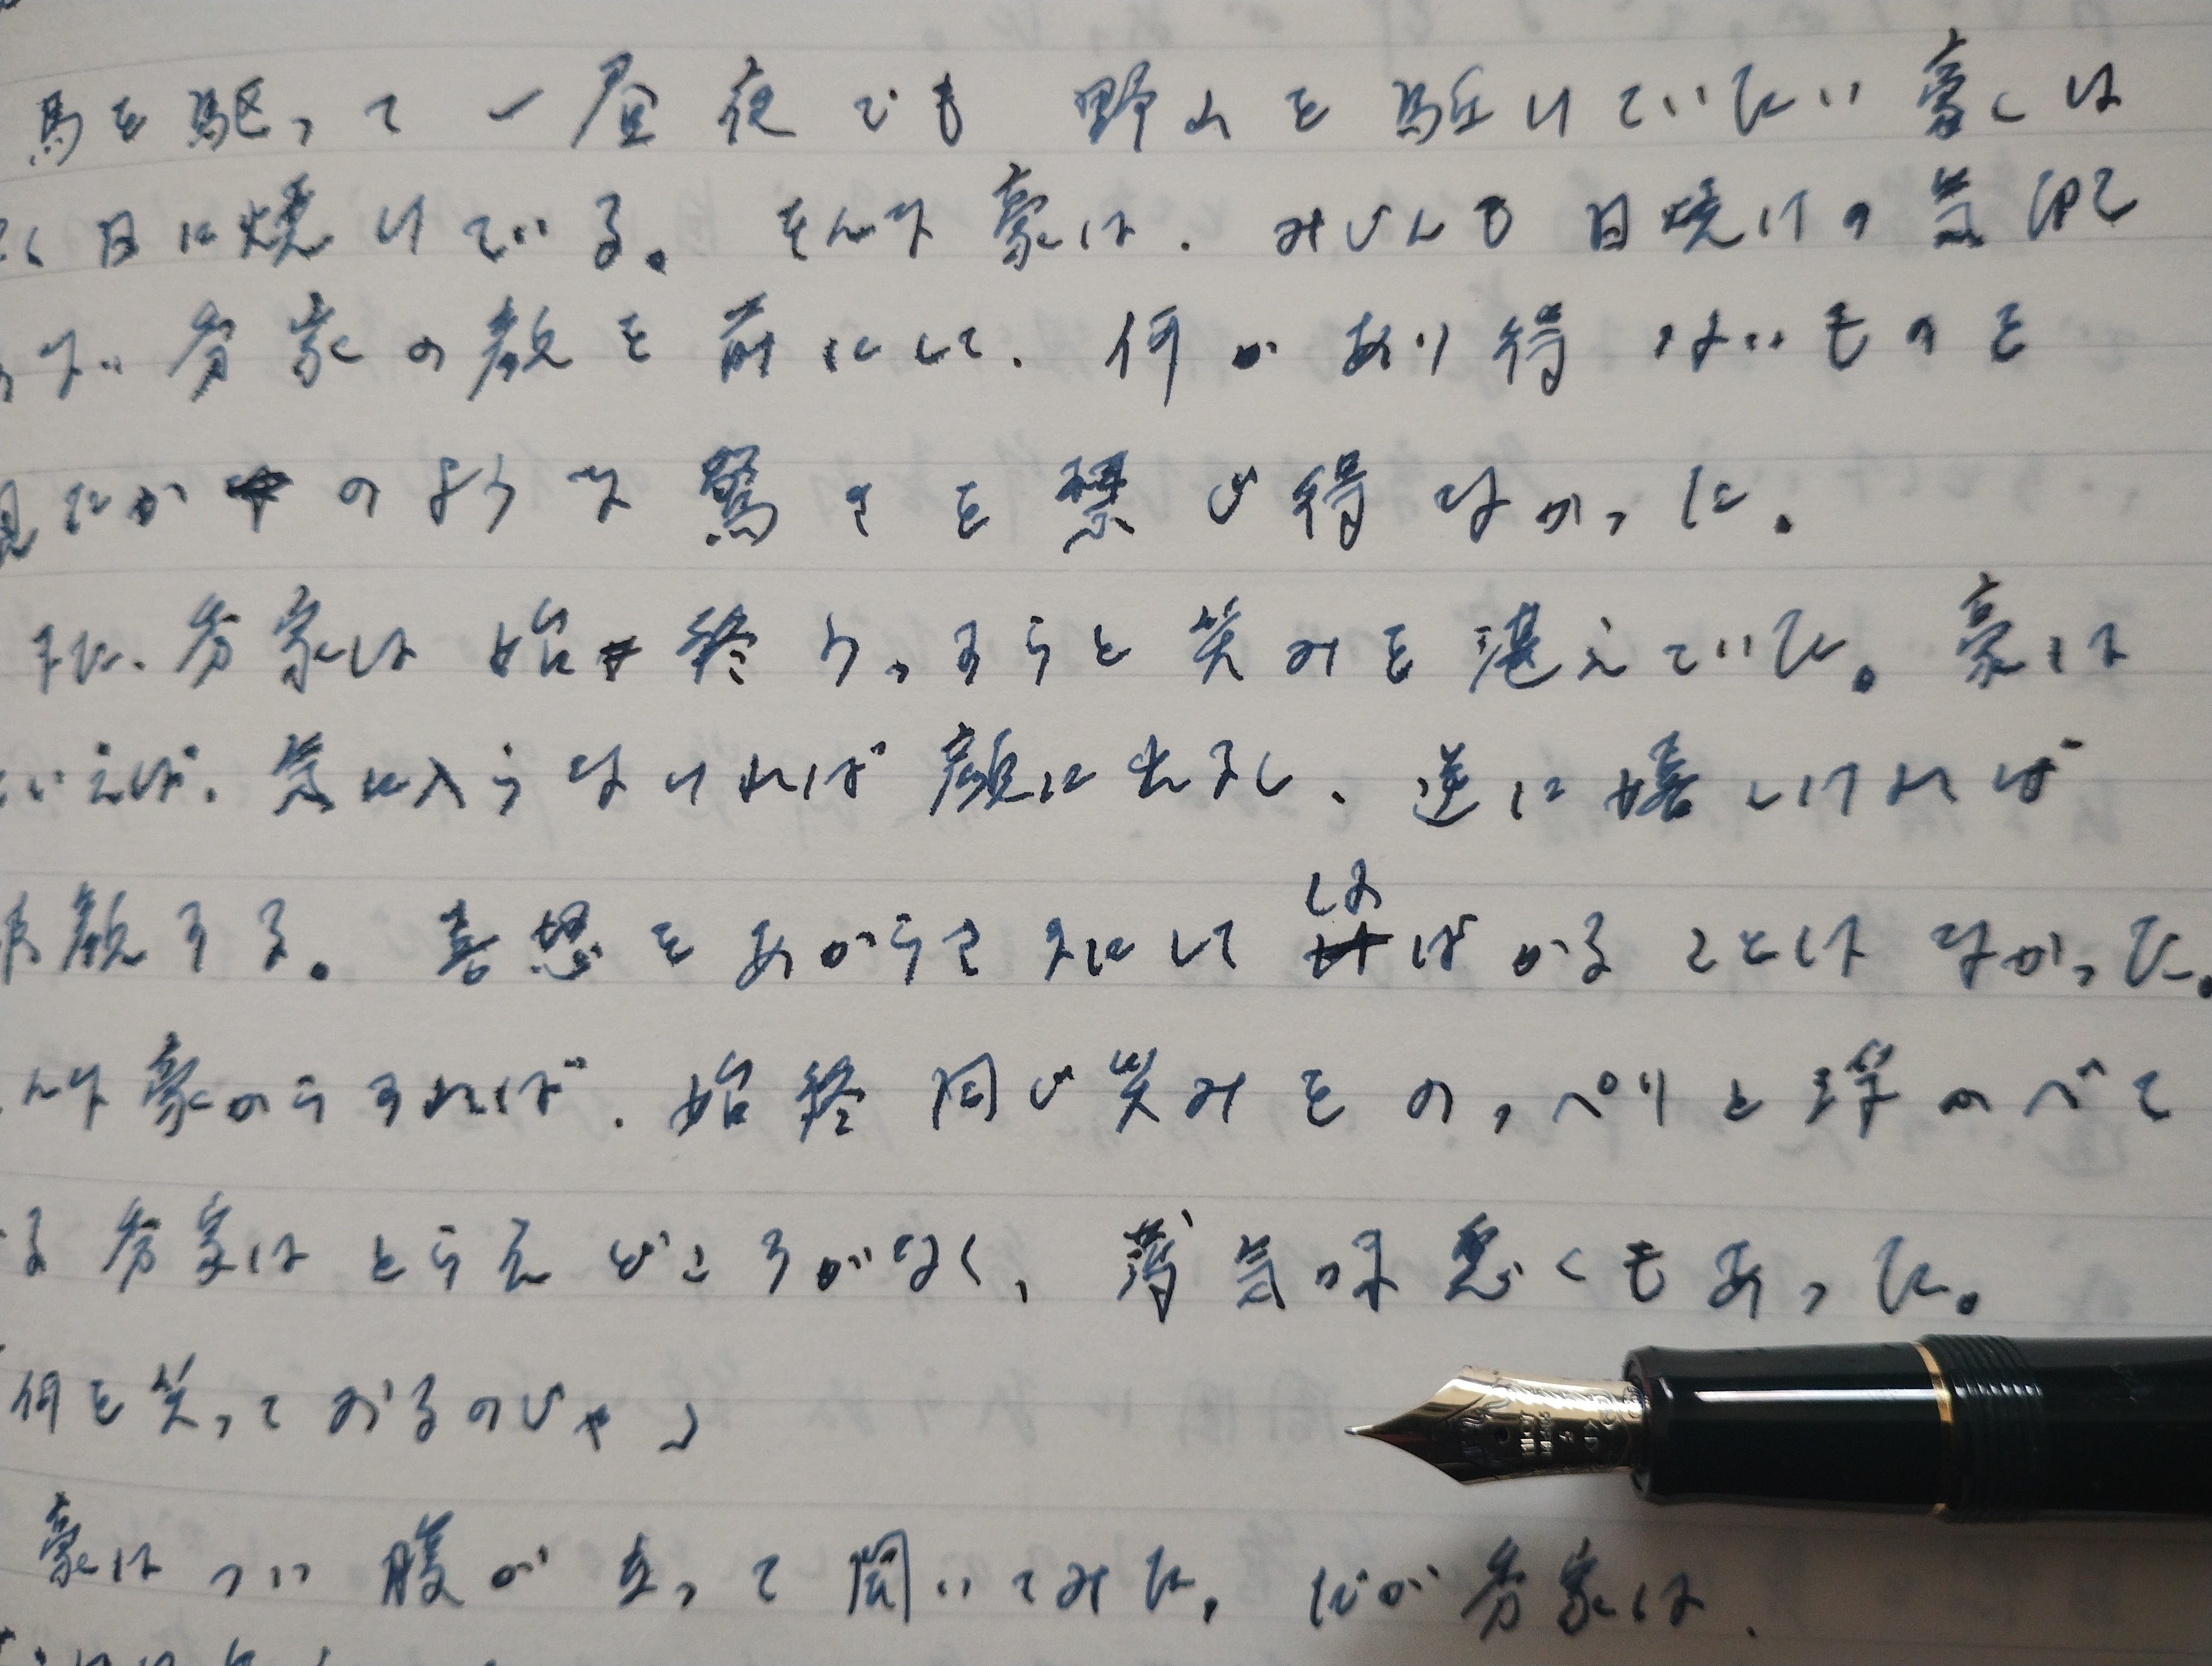 馬を駆って一昼夜でも野山を駈けていたい豪は
く日に焼けている。そんな豪は、みじんも日焼けの気配
ない秀家の顔を前にして、何かあり得ないものを
見たかのような驚きを禁じ得なかった。
また、秀家は始終うっすらと笑みを湛えていた。豪は
いえば、気に入らなければ顔に出るし、逆に嬉しければ
顔する。喜怒をあからさまにしてはばかることはなかった。
んな豪からすれば、始終同じ笑みをのっぺりと浮かべて
る秀家はとらえどころがなく、薄気味悪くもあった。
「何を笑っておるのじゃ」
豪はつい腹が立って聞いてみた。だが秀家は、